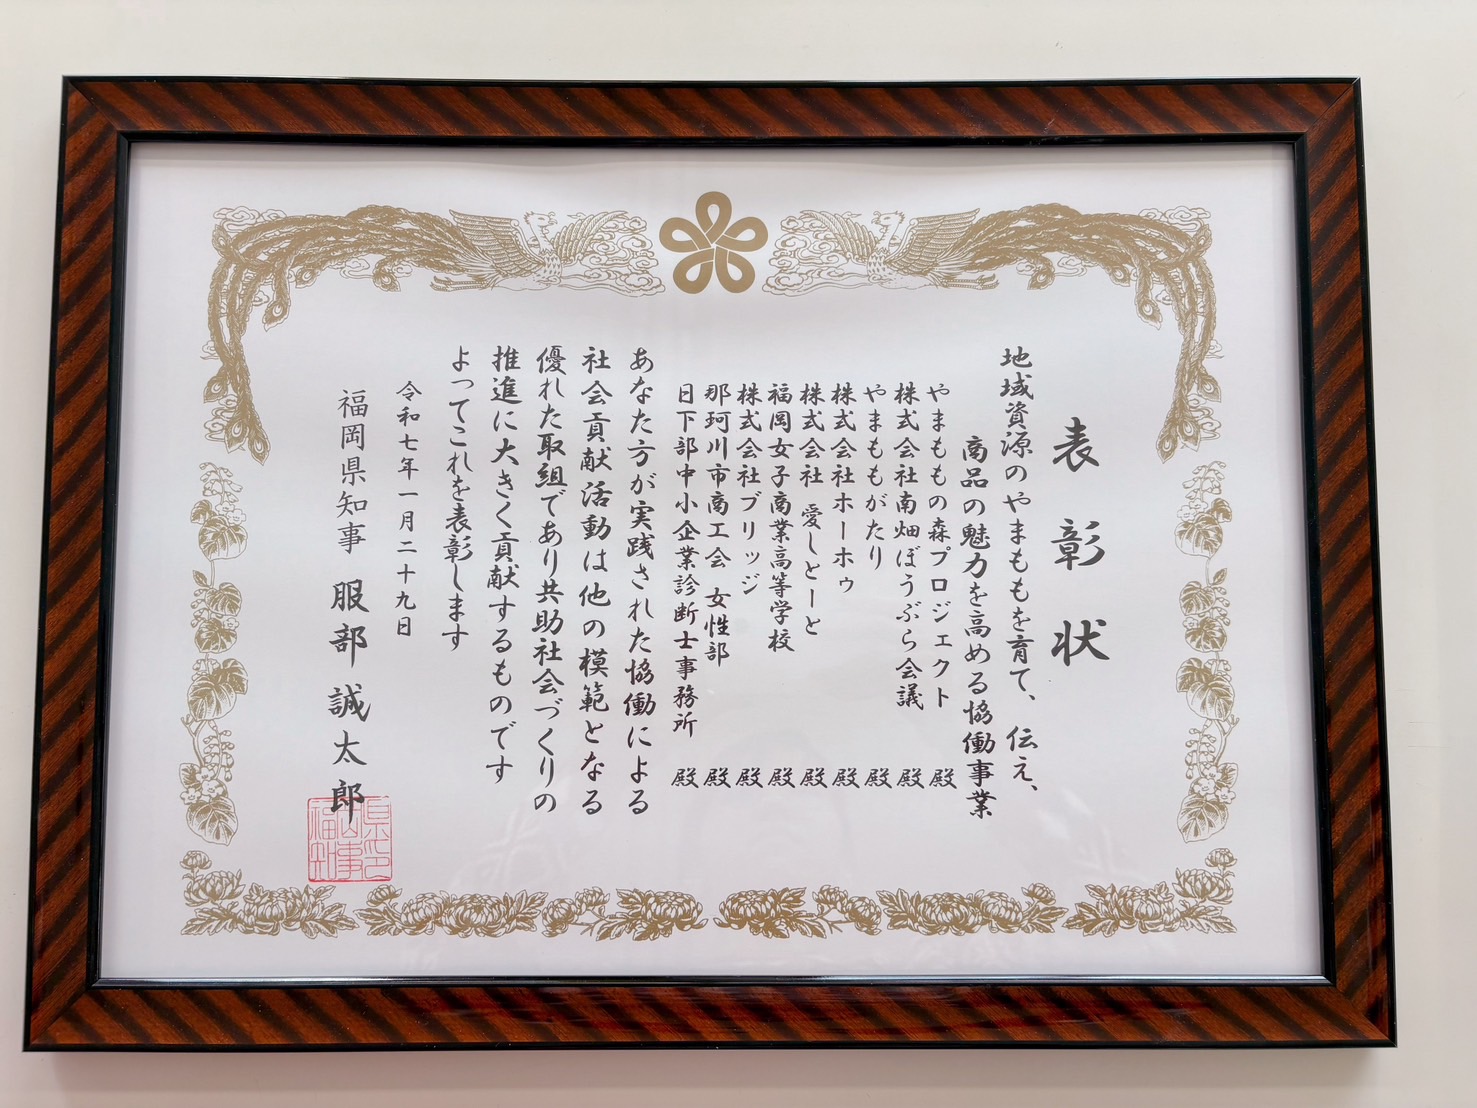 表彰状
地域資源のやまももを育て、伝え、
商品の魅力を高める協働事業
やまももの森プロジェクト 殿
株式会社南畑ぼうぶら会議 殿
やまももがたり 殿
株式会社ホーホゥ 殿
株式会社 愛しとーと 殿
福岡女子商業高等学校 殿
株式会社ブリッジ 殿
那珂川市商工会 女性部 殿
日下部中小企業診断士事務所 殿
あなた方が実践された協働による
社会貢献活動は他の模範となる
優れた取組であり共助社会づくりの
推進に大きく貢献するものです
よってこれを表彰します
令和七年一月二十九日
福岡県知事 服部 誠太郎